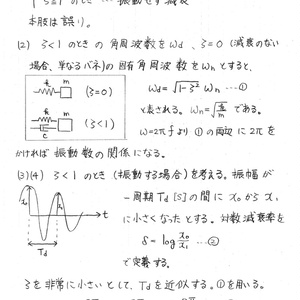 ζ≧1 のとき … 振動せず減衰
本肢は誤り。
(2) ζ<1 のときの角周波数をωd、ζ=0 (減衰のない
場合、単なるバネ)の固有角周波数をωnとすると、
ωd = √1-ζ² ωn …①
k m (ζ=0)
と表される。ωn = √k/m である。
k m c (ζ<1)
ω=2πf より ①の両辺に 2πを
かければ 振動数の関係になる。
(3)(4) ζ<1 のとき (振動する場合) を考える。振幅が
一周期 Td [s] の間に x₀ から x₁
x₀ x₁ t
に小さくなったとする。対数減衰率を
δ = log x₀/x₁ …②
Td
で定義する。
ζを非常に小さいとして、Tdを近似する。①を用いる。